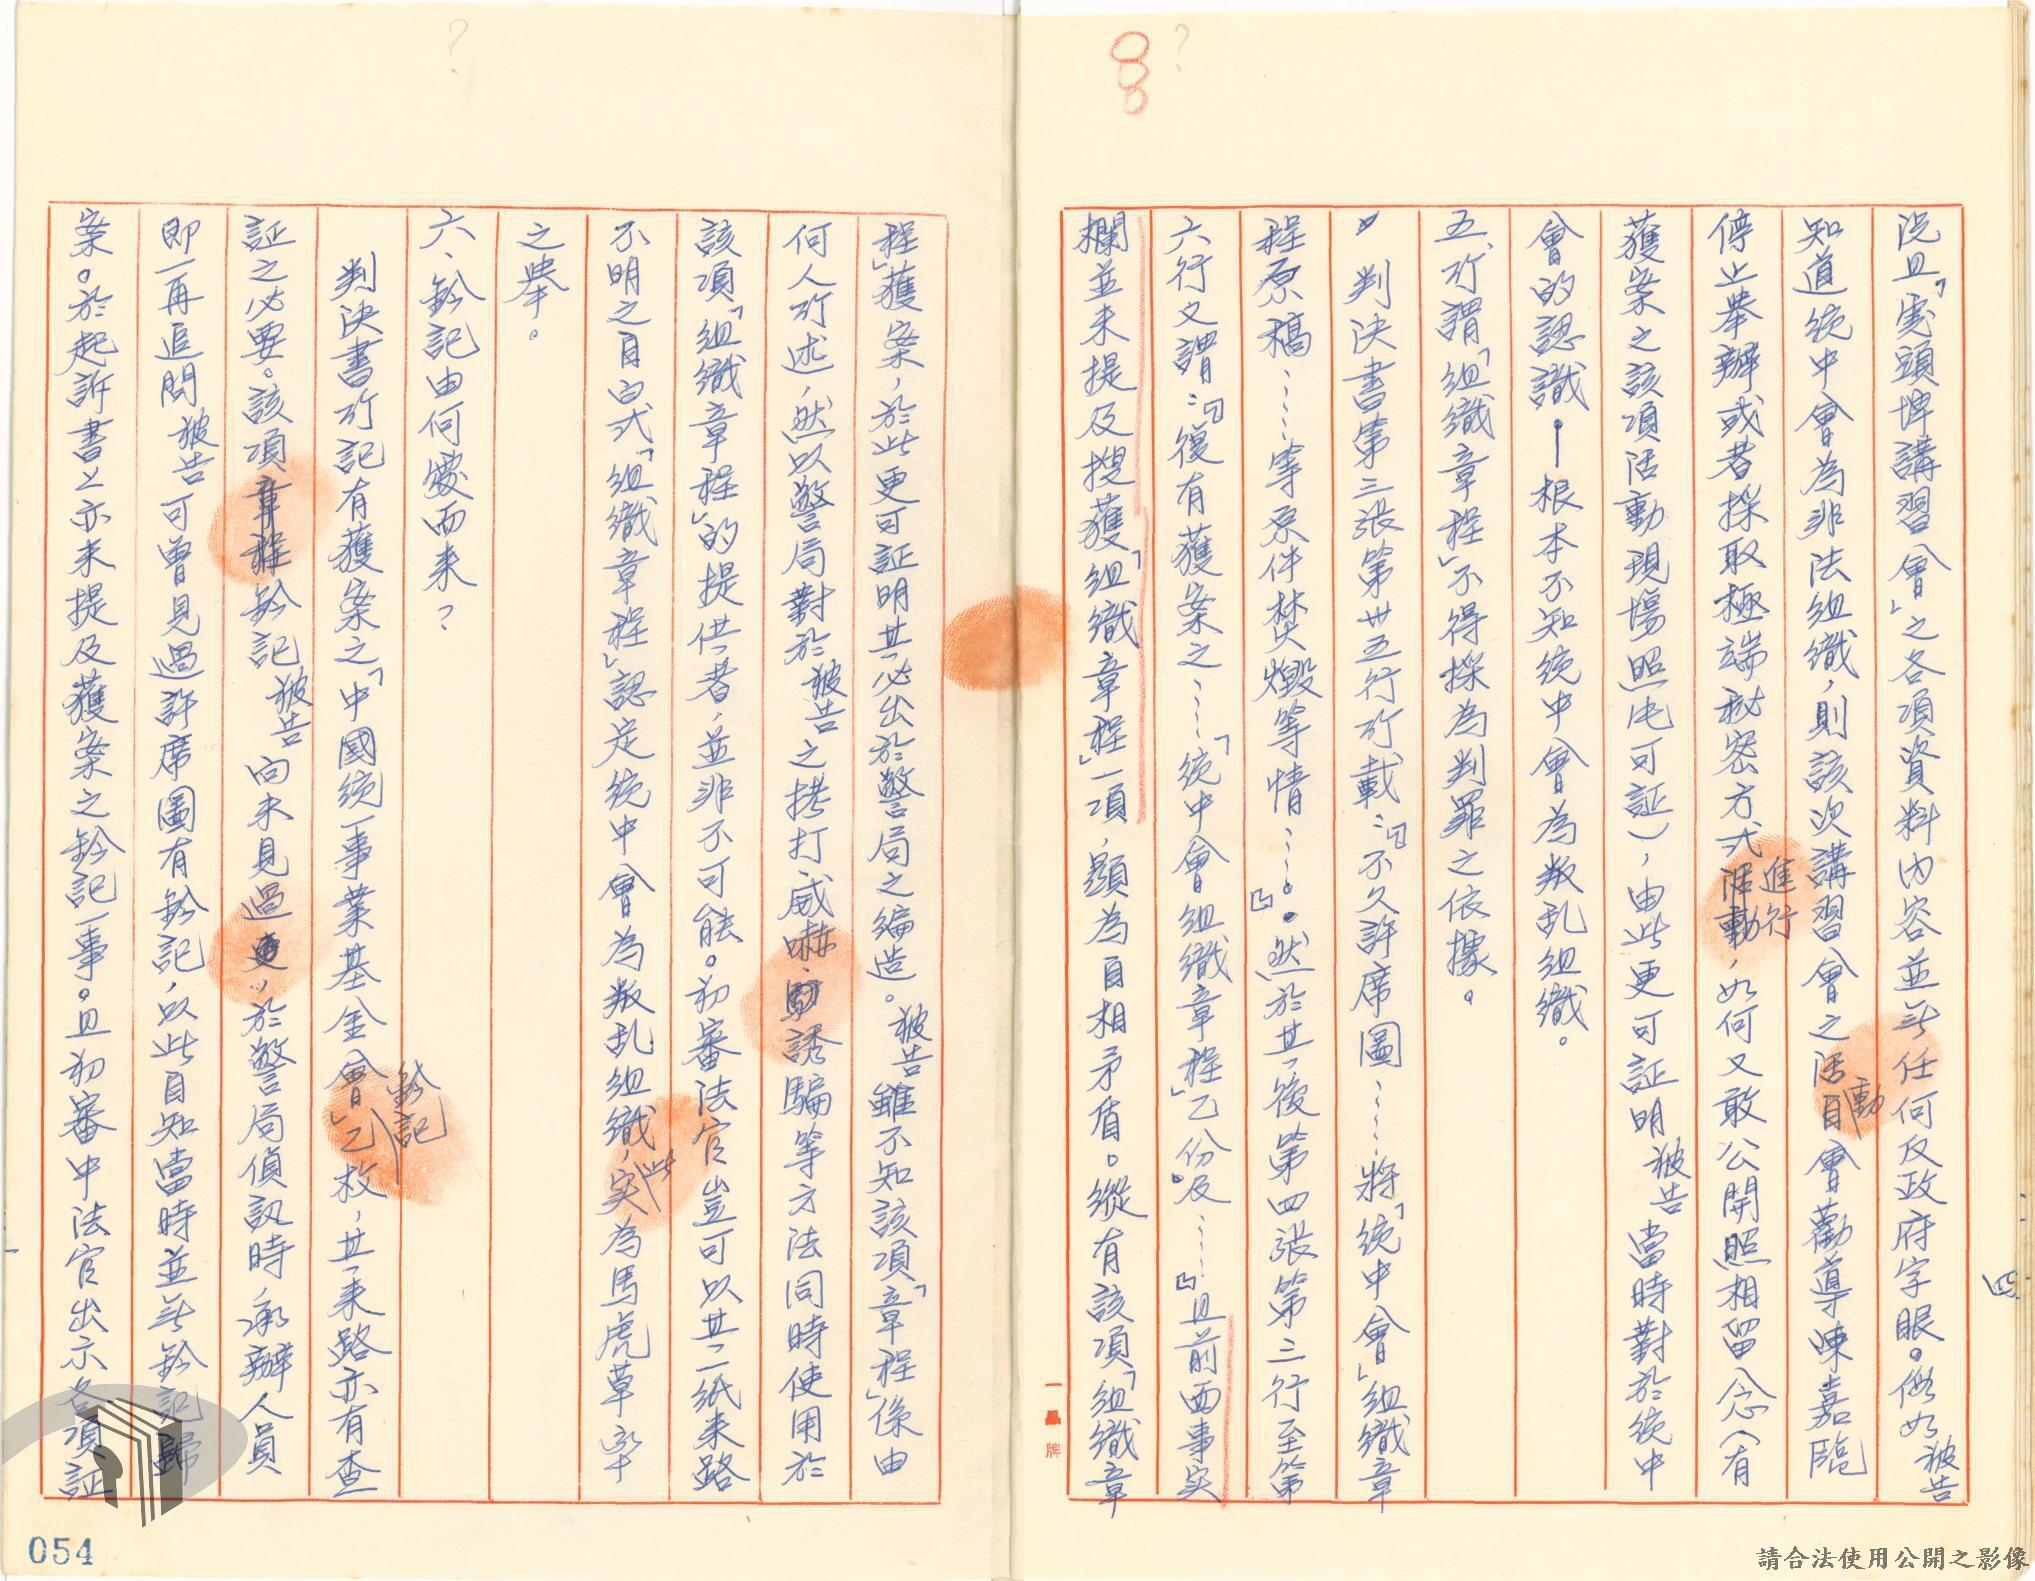 況且「埤頭埤講習會」之各項資料內容並無任何反政府字眼。倘如被告
知道統中會為非法組織，則該次講習會之活動自會勸導陳嘉臨
停止舉辦或者採取極端秘密方式進行，如何又敢公開照相留念（有
獲案之該項活動現場照片可証），由此更可証明被告當時對於統中
會的認識—根本不知統中會為叛乱組織。
五、所謂「組織章程」不得採為判罪之依據。
判決書第三張第卅五行所載：『不久許席圖……將「統中會」組織章
程原稿……等原件焚燬等情……。』然於其後第四張第三行至第
六行又謂：『復有獲案之……「統中會組織章程」乙份及……』且前面事实
欄並未提及搜獲「組織章程」一項，顯為自相矛盾。縱有該項「組織章
程」獲案，於此更可証明其必出於警局之編造。被告雖不知該項「章程」係由
何人所述，然以警局對於被告之拷打、威嚇、誘騙等方法同時使用於
該項「組織章程」的提供者，並非不可能。初審法官豈可以其二紙來路
不明之自白式「組織章程」認定統中會為叛乱組織，此实為馬虎草率
之舉。
六、鈐記由何處而来？
判決書所記有獲案之「中國統一事業基金會」鈐記乙枚，其来路亦有查
証之必要。該項鈐記被告向未見過，於警局偵訊時，承辦人員
即一再追問被告可曾見過許席圖有鈐記，以此自知當時並無鈐記歸
案。於起訴書上亦未提及獲案之鈐記一事。且初審中法官出示各項証
四
一 牌
054
請合法使用公開之影像